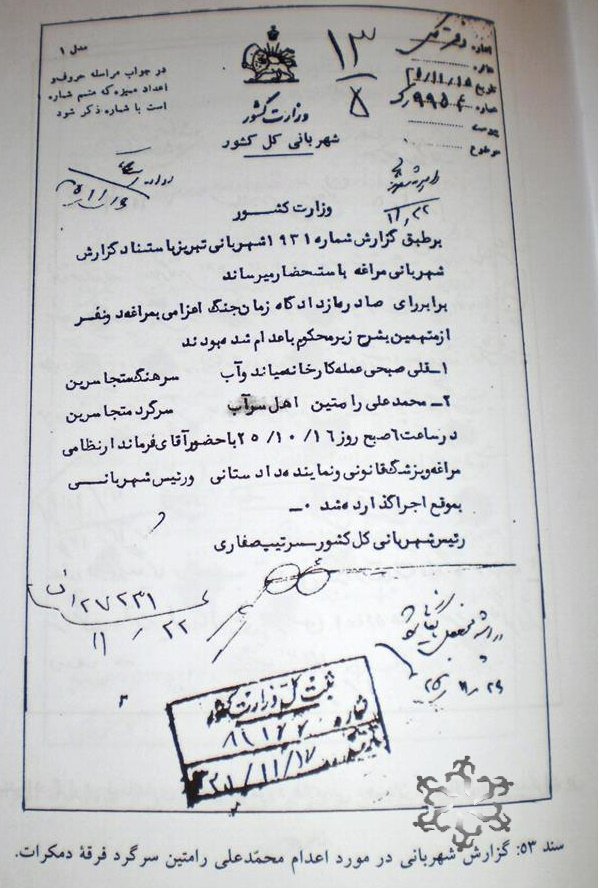 مدل ۱
در جواب مراسله حروف و
اعداد ممیزه که منضم شماره
است با شماره ذکر شود
۱۳
۵
اداره
دایره
تاریخ ۲۵/۱۱/۱۵
شماره ۹۹۵۴
پیوست
موضوع
وزارت کشور
شهربانی کل کشور
۱۱/۲۲
وزارت کشور
برطبق گزارش شماره ۱۹۳۱ شهربانی تبریز باستناد گزارش
شهربانی مراغه باستحضار میرساند
برابر رای صادره از دادگاه زمان جنگ اعزامی بمراغه دو نفر
از متهمین بشرح زیر محکوم باعدام شده بودند
۱ـ قلی صبحی عمله کارخانه میاند وآب سرهنگ متجاسرین
۲ـ محمدعلی رامتین اهل سوآب سرگرد متجاسرین
در ساعت ۶ صبح روز ۲۵/۱۰/۱۶ با حضور آقای فرماندار نظامی
مراغه و پزشک قانونی و نماینده دادستانی و رئیس شهربانی
بموقع اجرا گذارده شد ۰ـ
رئیس شهربانی کل کشور ـ سرتیپ صفاری
۲۷۲۳۱
۱۱/۲۲
ثبت کل وزارت کشور
شماره
تاریخ ۲۵/۱۱/۱۷
سند ۵۳: گزارش شهربانی در مورد اعدام محمّدعلی رامتین سرگرد فرقهٔ دمکرات.